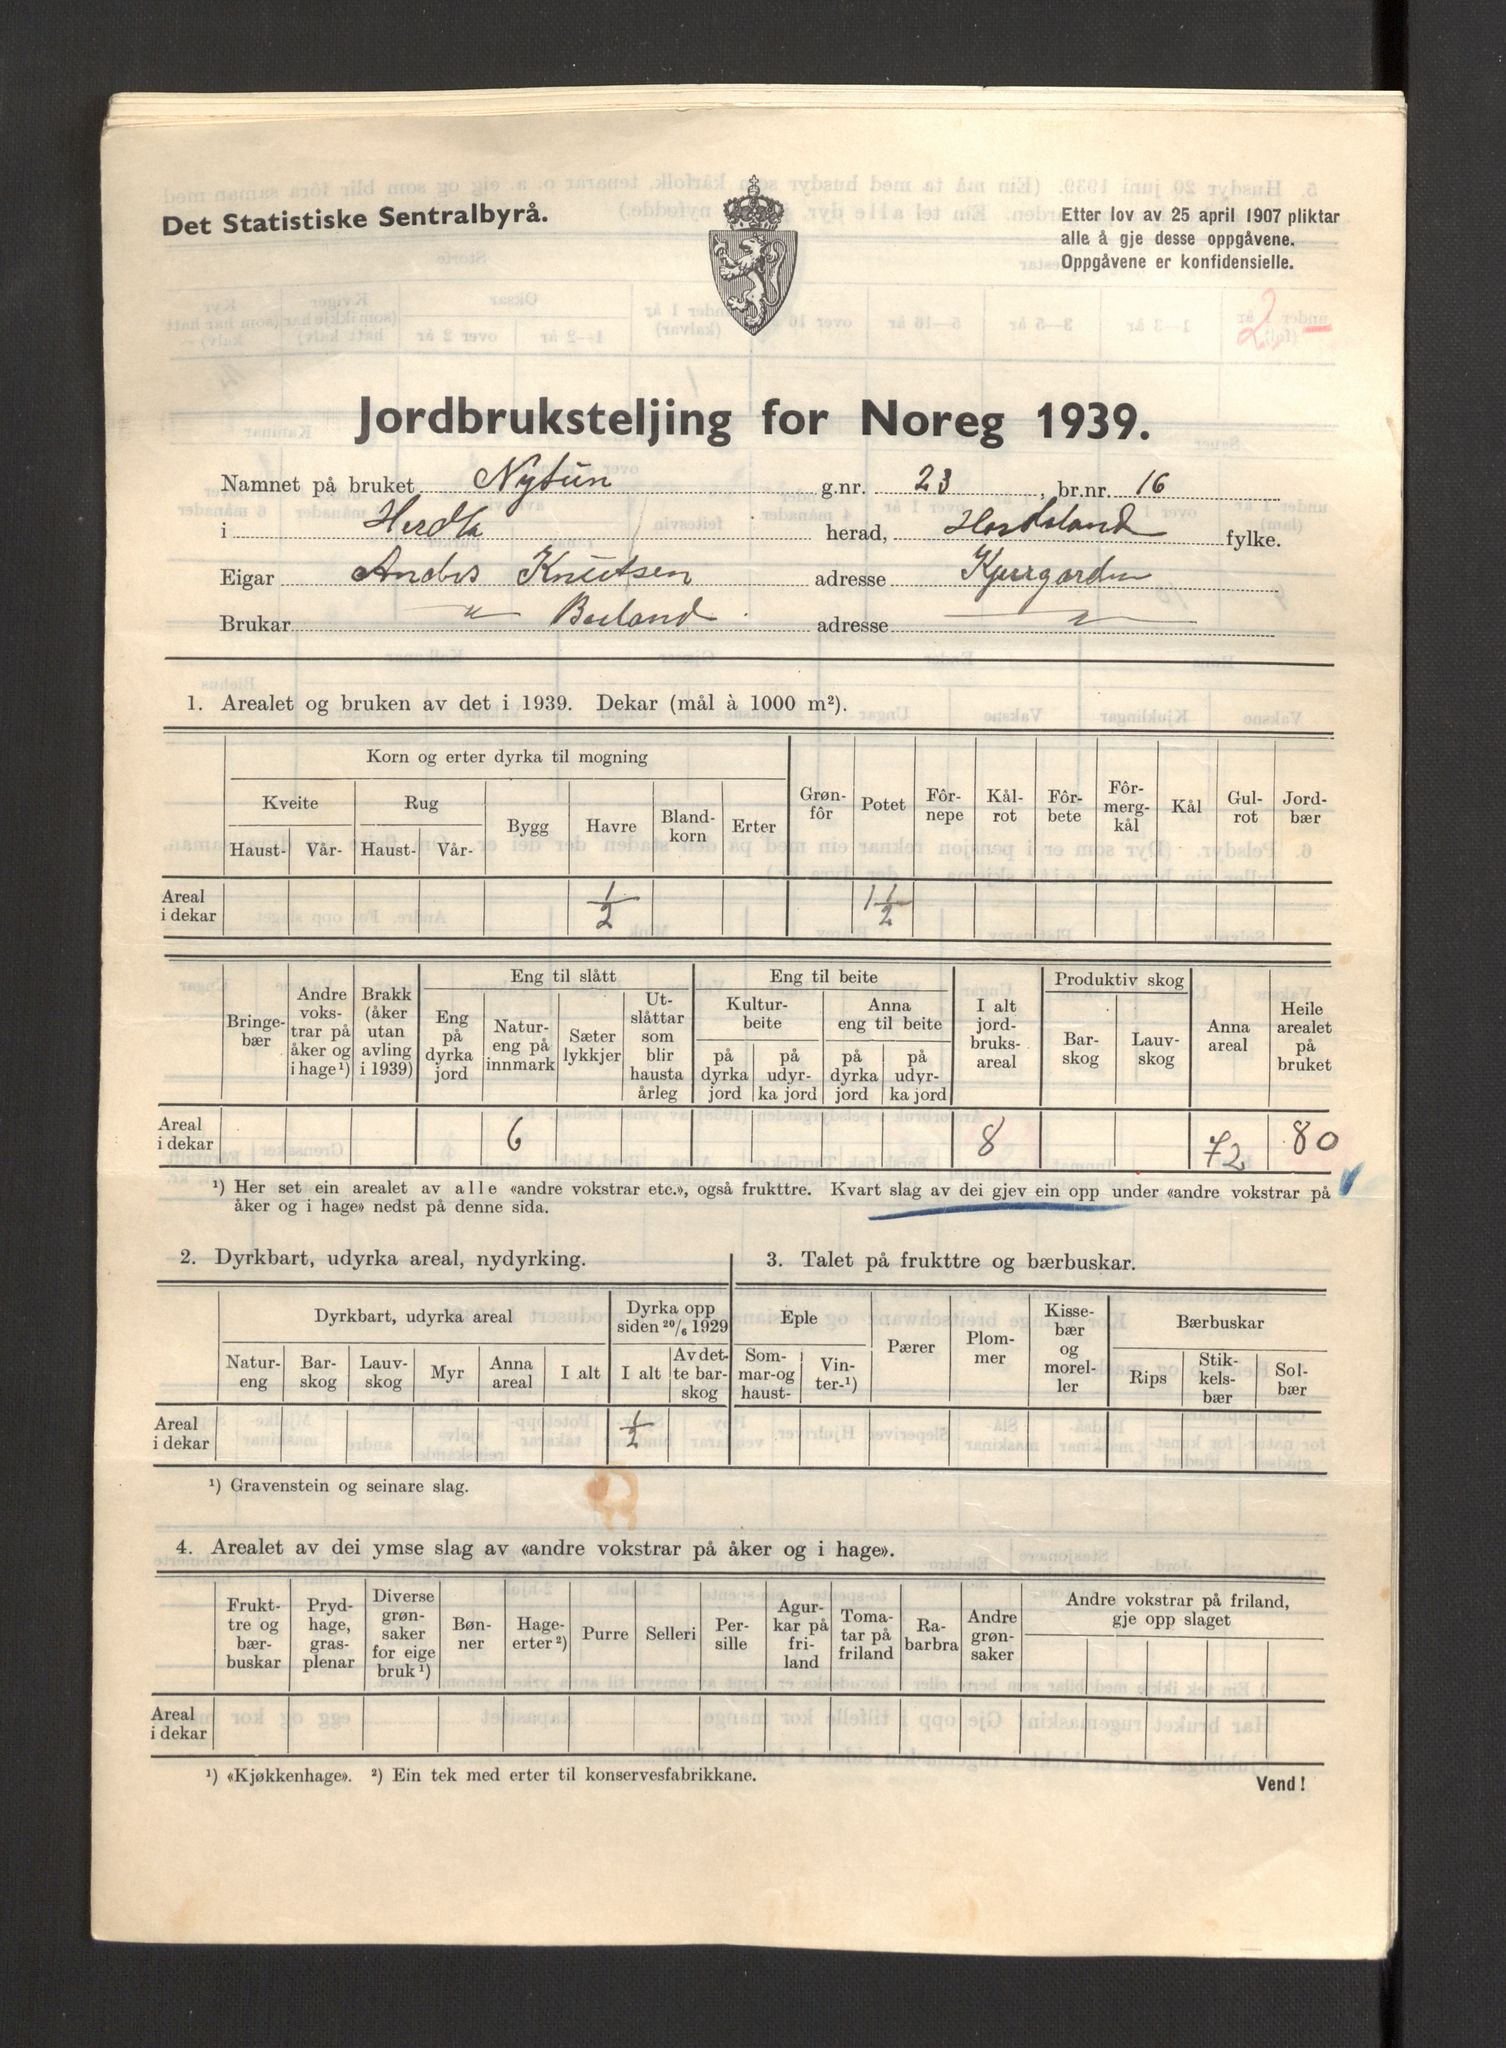 Det Statistiske Sentralbyrå.
Etter lov av 25 april 1907 pliktar
alle å gje desse oppgåvene.
Oppgåvene er konfidensielle.
2
Jordbruksteljing for Noreg 1939.
Namnet på bruket Nytun g.nr. 23, br.nr. 16
i Herdla herad, Hordaland fylke.
Eigar Andrs Knutsen adresse Kjergarden
Brukar " adresse "
1. Arealet og bruken av det i 1939. Dekar (mål à 1000 m²).
Korn og erter dyrka til mogning
Kveite Rug Bygg Havre Blandkorn Erter Grønfôr Potet Fôrnepe Kålrot Fôrbete Fôrmergkål Kål Gulrot Jordbær
Haust- Vår- Haust- Vår-
Areal i dekar 1/2 1 1/2
Eng til slått Eng til beite Produktiv skog
Bringebær Andre vokstrar på åker og i hage¹) Brakk (åker utan avling i 1939) Eng på dyrka jord Natureng på innmark Sæterlykkjer Utslåttar som blir hausta årleg Kulturbeite Anna eng til beite I alt jordbruksareal Barskog Lauvskog Anna areal Heile arealet på bruket
på dyrka jord på udyrka jord på dyrka jord på udyrka jord
Areal i dekar 6 8 72 80
¹) Her set ein arealet av alle «andre vokstrar etc.», også frukttre. Kvart slag av dei gjev ein opp under «andre vokstrar på
åker og i hage» nedst på denne sida.
2. Dyrkbart, udyrka areal, nydyrking.
Dyrkbart, udyrka areal Dyrka opp siden 20/6 1929
Natureng Barskog Lauvskog Myr Anna areal I alt I alt Av dette barskog
Areal i dekar 1/2
¹) Gravenstein og seinare slag.
3. Talet på frukttre og bærbuskar.
Eple Pærer Plommer Kissebær og moreller Bærbuskar
Sommar- og haust- Vinter-¹) Rips Stikkelsbær Solbær
4. Arealet av dei ymse slag av «andre vokstrar på åker og i hage».
Frukttre og bærbuskar Prydhage, grasplenar Diverse grønsaker for eige bruk¹) Bønner Hageerter²) Purre Selleri Persille Agurkar på friland Tomatar på friland Rabarbra Andre grønsaker Andre vokstrar på friland, gje opp slaget
Areal i dekar
¹) «Kjøkkenhage». ²) Ein tek med erter til konservesfabrikkane.
Vend!